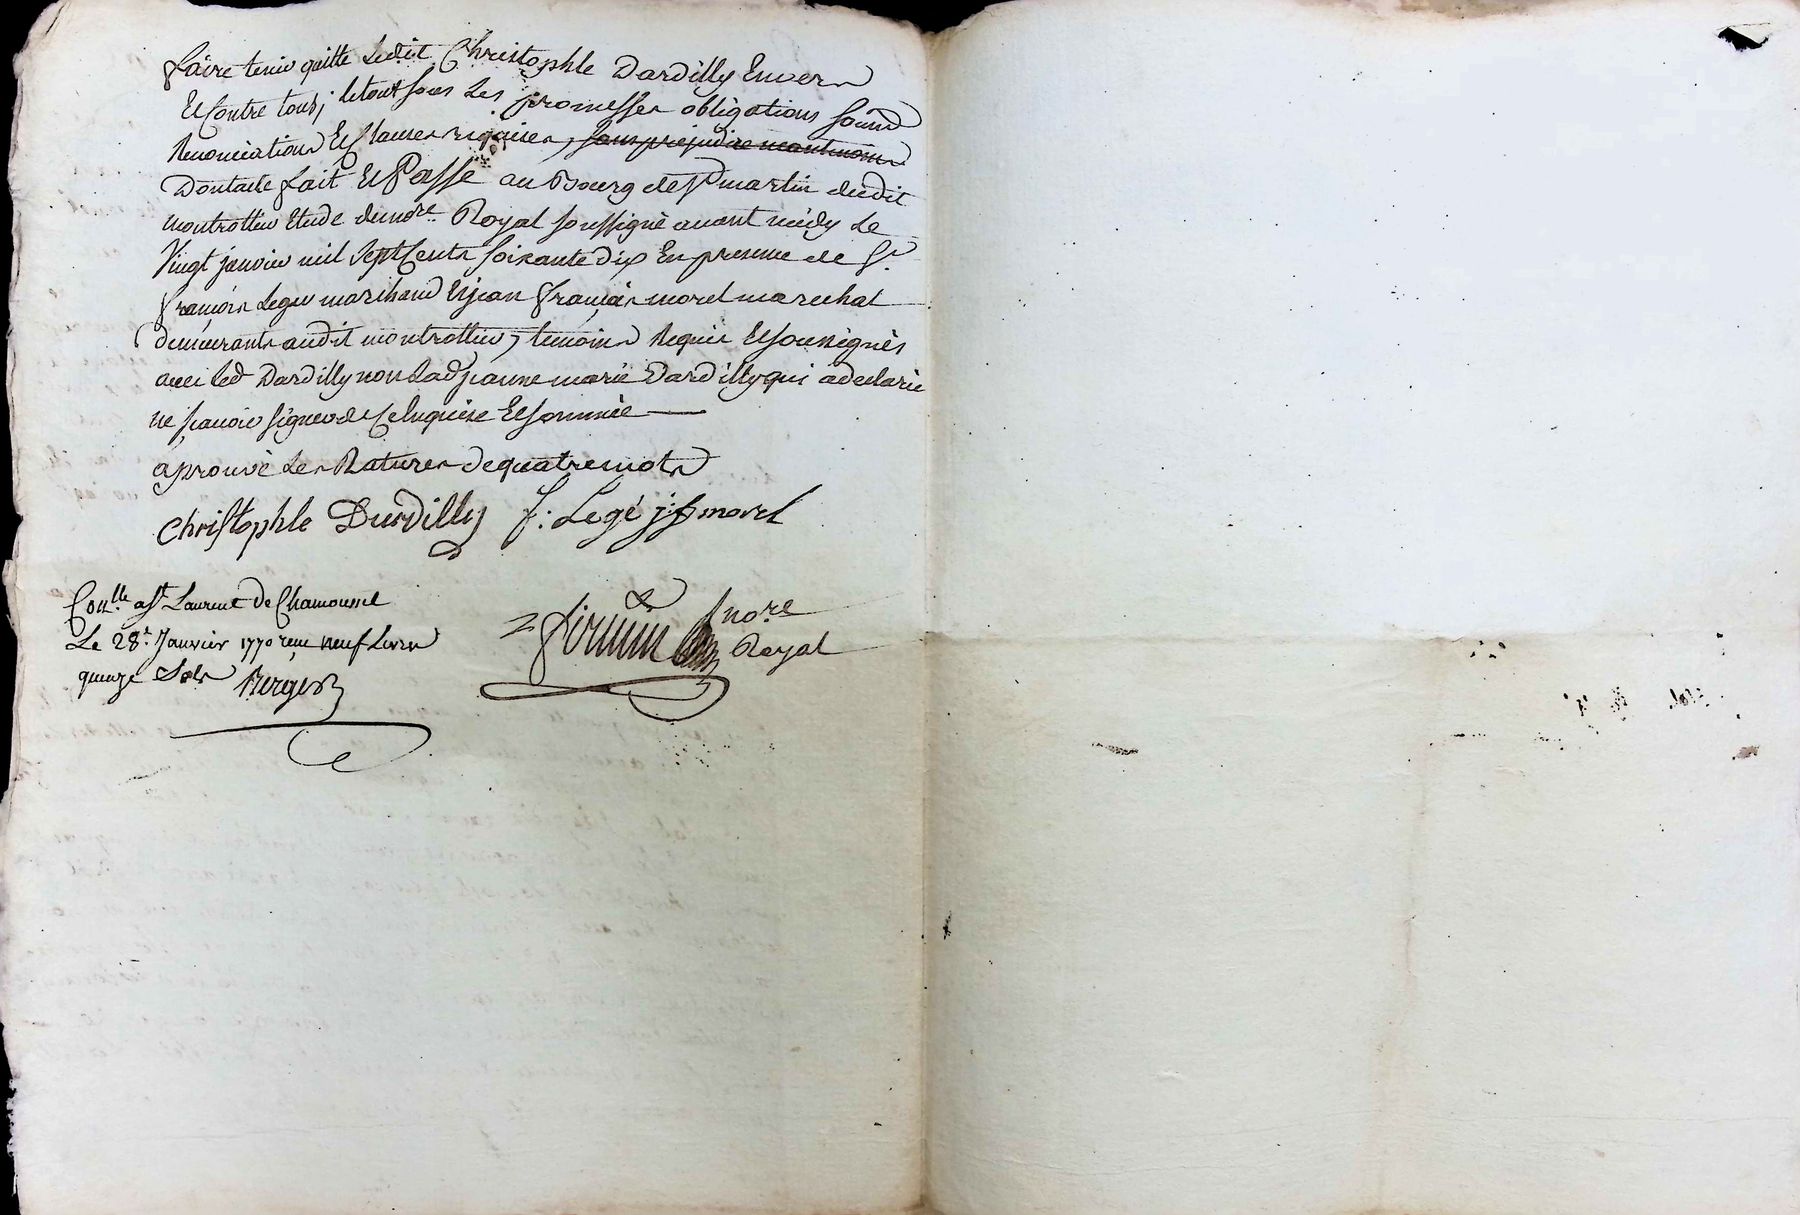 faire tenir quitte Ledit Christophle Dardilly Envers
Et Contre tous; letout sous Les promesses obligations soum
Renonciations Et Clauses requises, sans prejudice neantmoins
Dontacte fait Et Passé au Bourg de St martin dudit
montrottier Etude dunore Royal soussigné avant midy Le
Vingt janvier mil Sept Cents Soixante Dix En presence de Sr
françois Leger marchand Et jean françois morel marechal
Demeurants audit montrottier, temoins Requis Et soussignés
avec led Dardilly non Lad jeanne marie Dardilly qui a declarée
ne scavoir signer de Ce Enquise Et sommée
aprouvé Les Ratures de quatre mots
Christophle Durdilly f: Legé j: f morel
Conlle a St Laurent de Chamousset
Le 28e Janvier 1770 reçu neuf Livres
quinze Sols Berger
nore
Royal